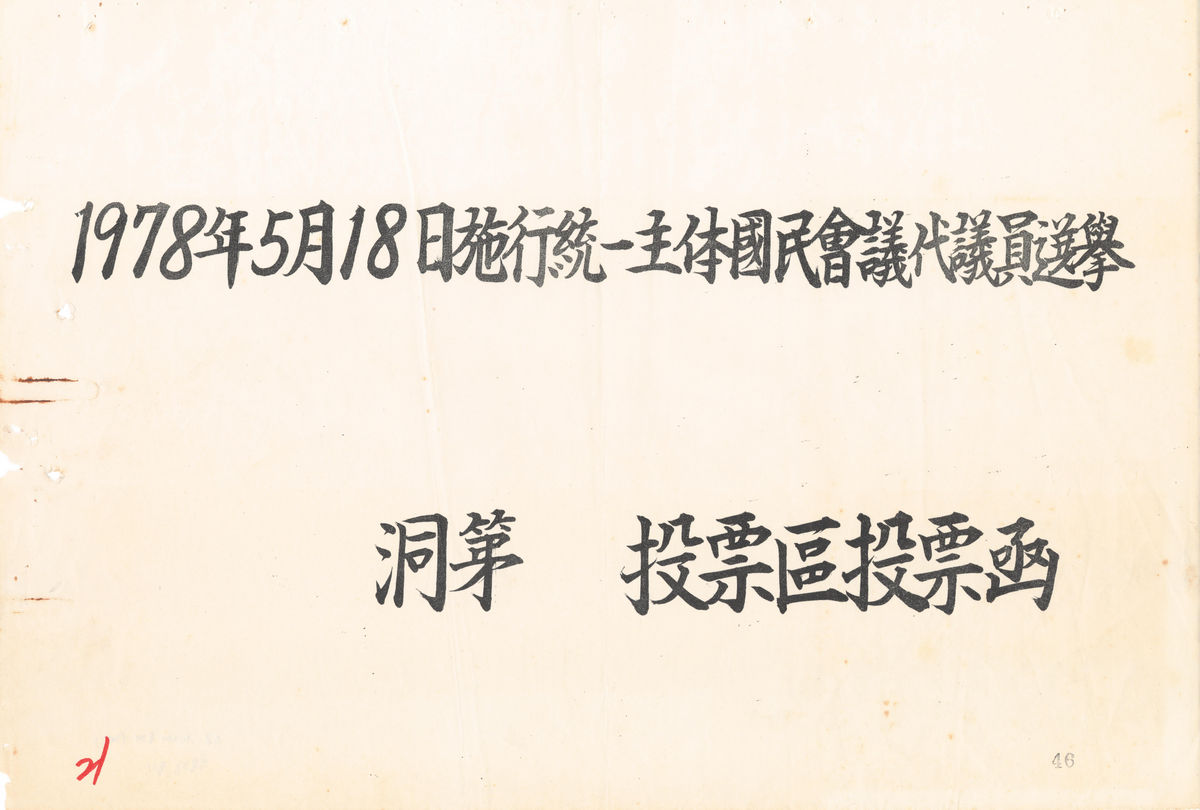 1978年5月18日施行統一主体國民會議代議員選擧
洞第 投票區投票函
21 46